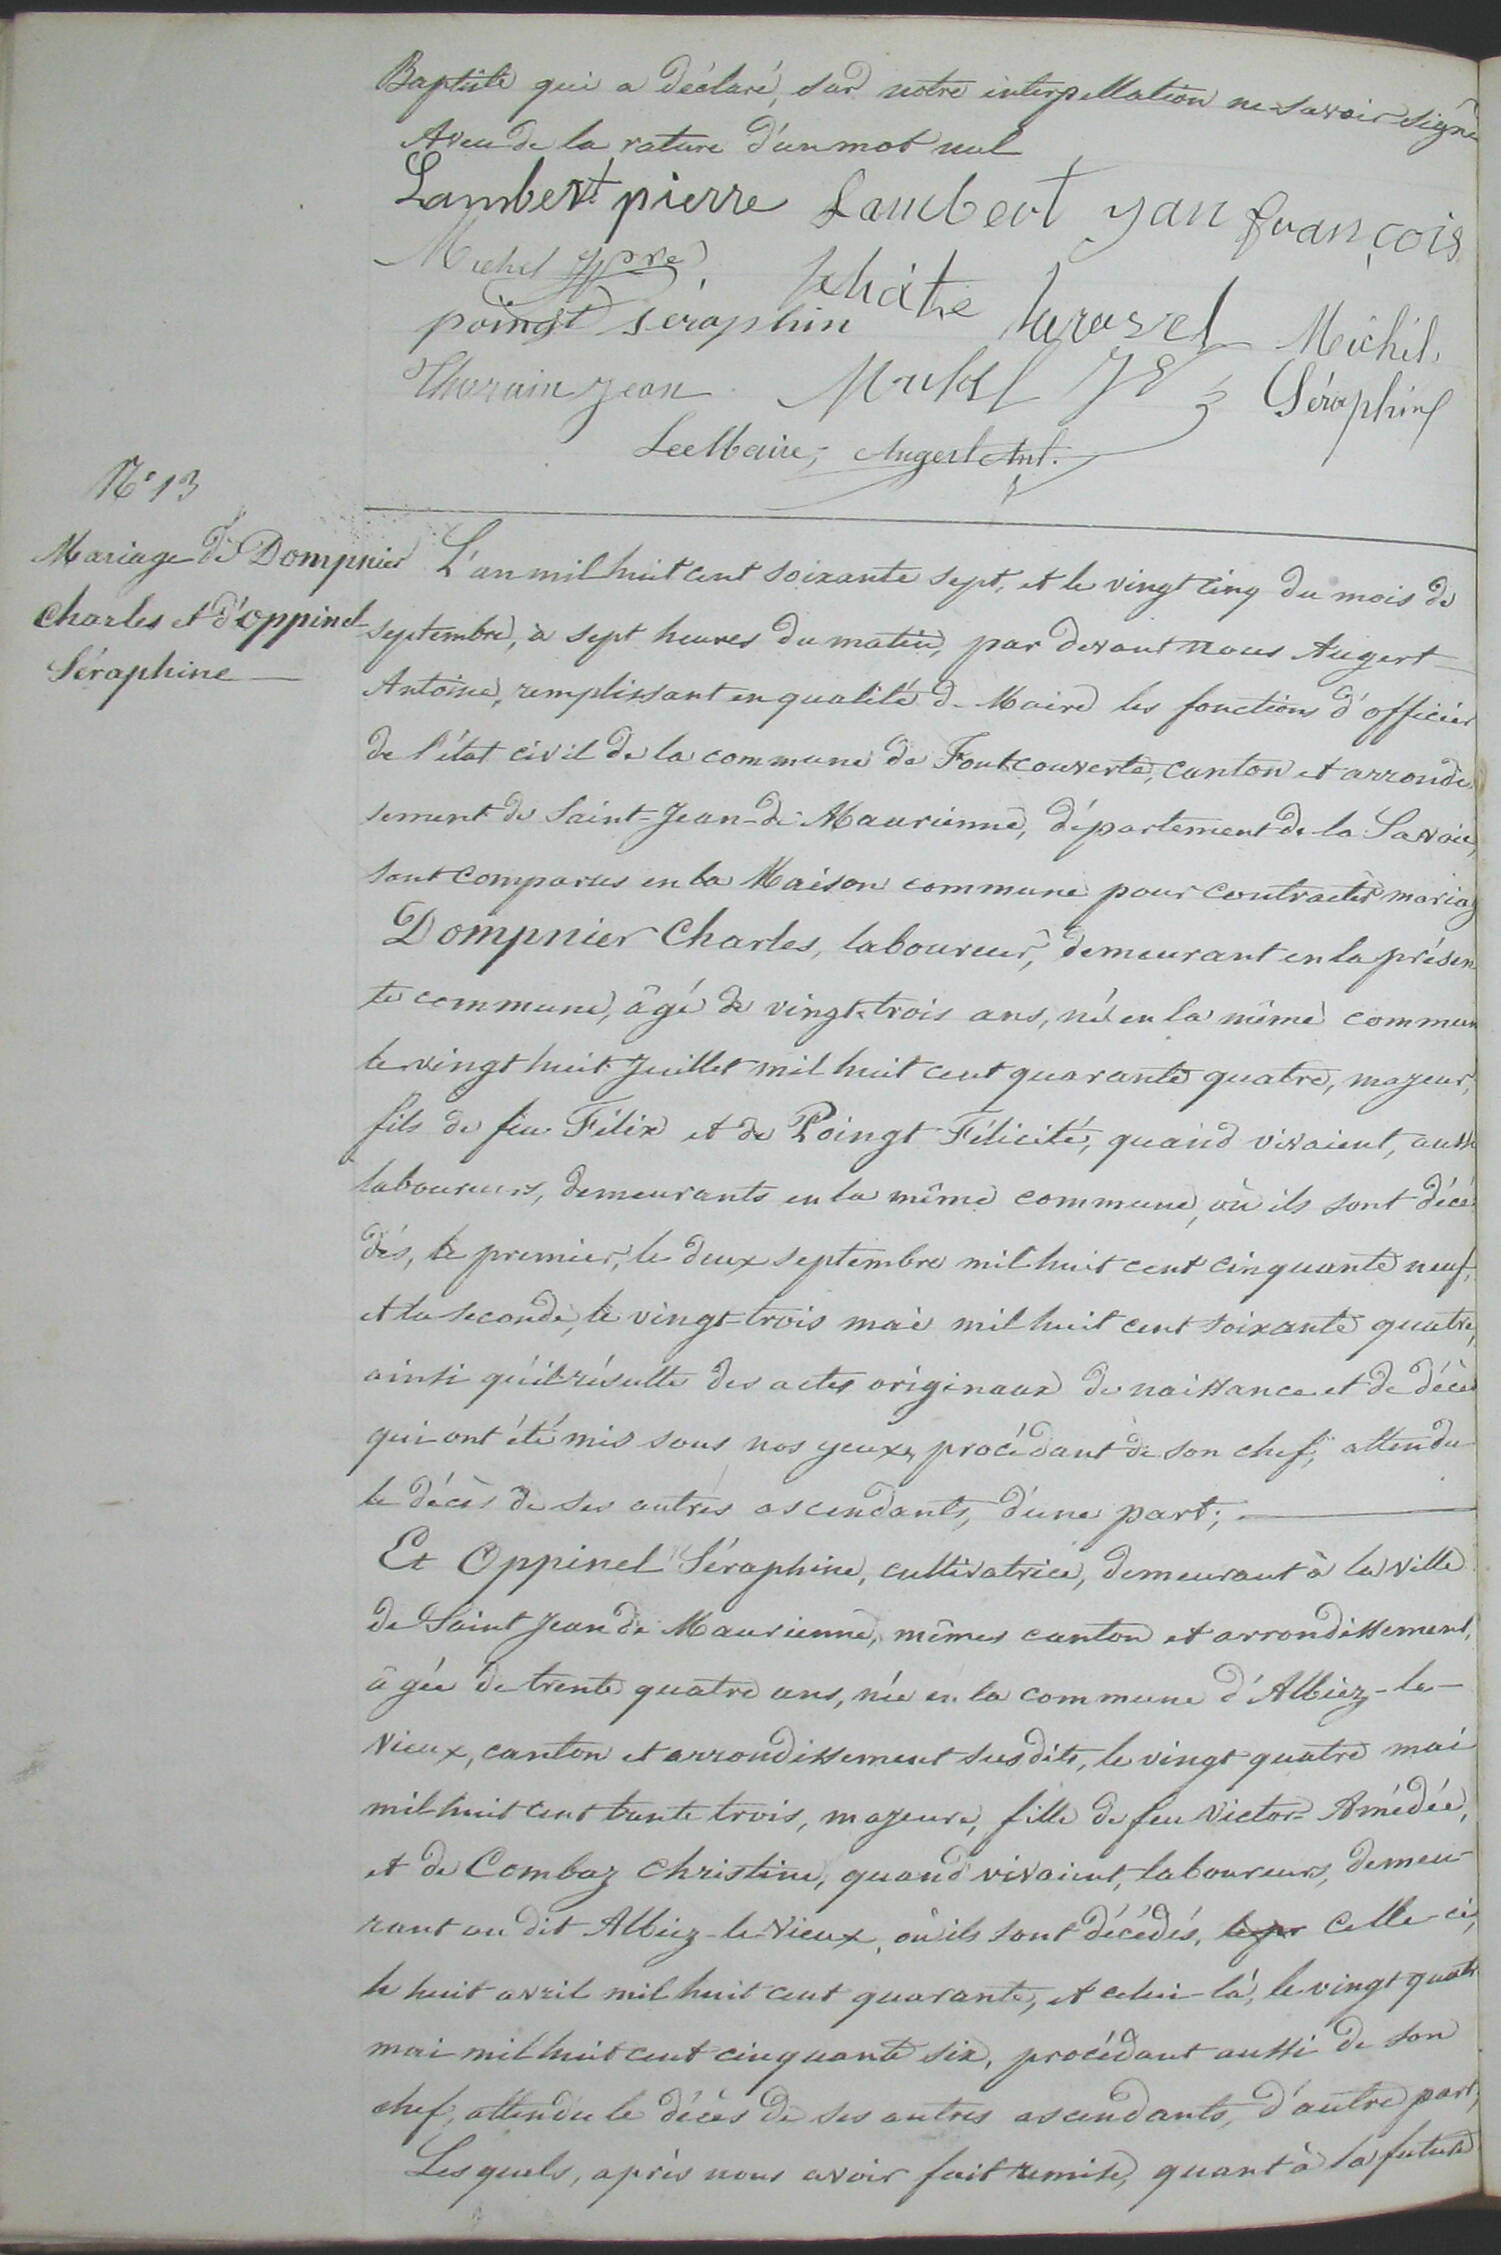 Baptiste qui a déclaré, sur notre interpellation ne savoir signé
Aveu de la rature d'un mot nul
Lambert pierre Lambert jan françois
Michel
poingt séraphin Michil
Thorain jean Séraphin
Le Maire, Augert Ant.
N° 13
Mariage de Dompnier
Charles et d'Oppinel
Séraphine
L'an mil huit cent soixante sept, et le vingt cinq du mois de
septembre, à sept heures du matin, par devant nous Augert
Antoine, remplissant en qualité de Maire les fonctions d'officier
de l'état civil de la commune de Fontcouverte, canton et arrondis
sement de Saint-Jean-de-Maurienne, département de la Savoie,
sont comparus en la Maison commune pour contracter mariag
Dompnier Charles, laboureur, demeurant en la présen
te commune, âgé de vingt-trois ans, né en la même commun
le vingt huit Juillet mil huit cent quarante quatre, majeur,
fils de feu Félix et de Poingt Félicité, quand vivaient, aussi
laboureurs, demeurants en la même commune, où ils sont décé
dés, le premier, le deux septembre mil huit cent cinquante neuf,
et la seconde, le vingt-trois mai mil huit cent soixante quatre,
ainsi qu'il résulte des actes originaux de naissance et de décès
qui ont été mis sous nos yeux, procédant de son chef, attendu
le décès de ses autres ascendants, d'une part;
Et Oppinel Séraphine, cultivatrice, demeurant à la ville
de Saint Jean de Maurienne, mêmes canton et arrondissement,
âgée de trente quatre ans, née en la commune d'Albiez-le-
Vieux, canton et arrondissement susdits, le vingt quatre mai
mil huit cent trente trois, majeure, fille de feu Victor-Amédée,
et de Combaz Christine, quand vivaient, laboureurs, demeu-
rant au dit Albiez-le-Vieux, où ils sont décédés, le pr celle-ci,
le huit avril mil huit cent quarante, et celui-là, le vingt quatr
mai mil huit cent cinquante six, procédant aussi de son
chef, attendu le décès de ses autres ascendants, d'autre part,
Lesquels, après nous avoir fait remise, quant à la future